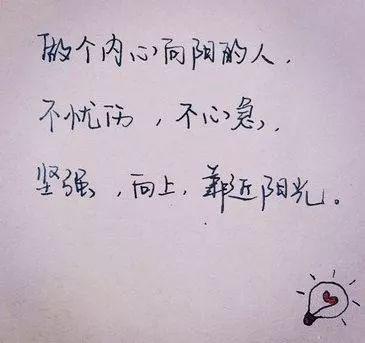 做个内心向阳的人．
不忧伤，不心急，
坚强，向上，靠近阳光。